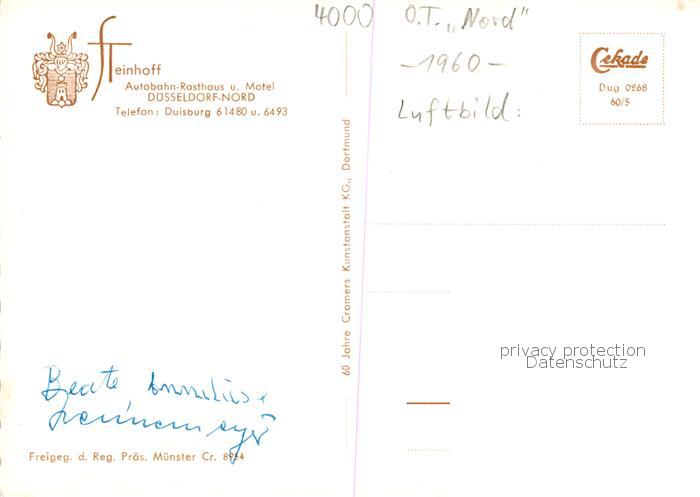 Steinhoff
Autobahn-Rasthaus u. Motel
DÜSSELDORF-NORD
Telefon: Duisburg 61480 u. 6493
4000 O.T. „Nord"
-1960-
Luftbild:
Cekade
Dug 0268
60/5
60 Jahre Cramers Kunstanstalt KG., Dortmund
privacy protection
Datenschutz
Beate
Freigeg. d. Reg. Präs. Münster Cr. 8954